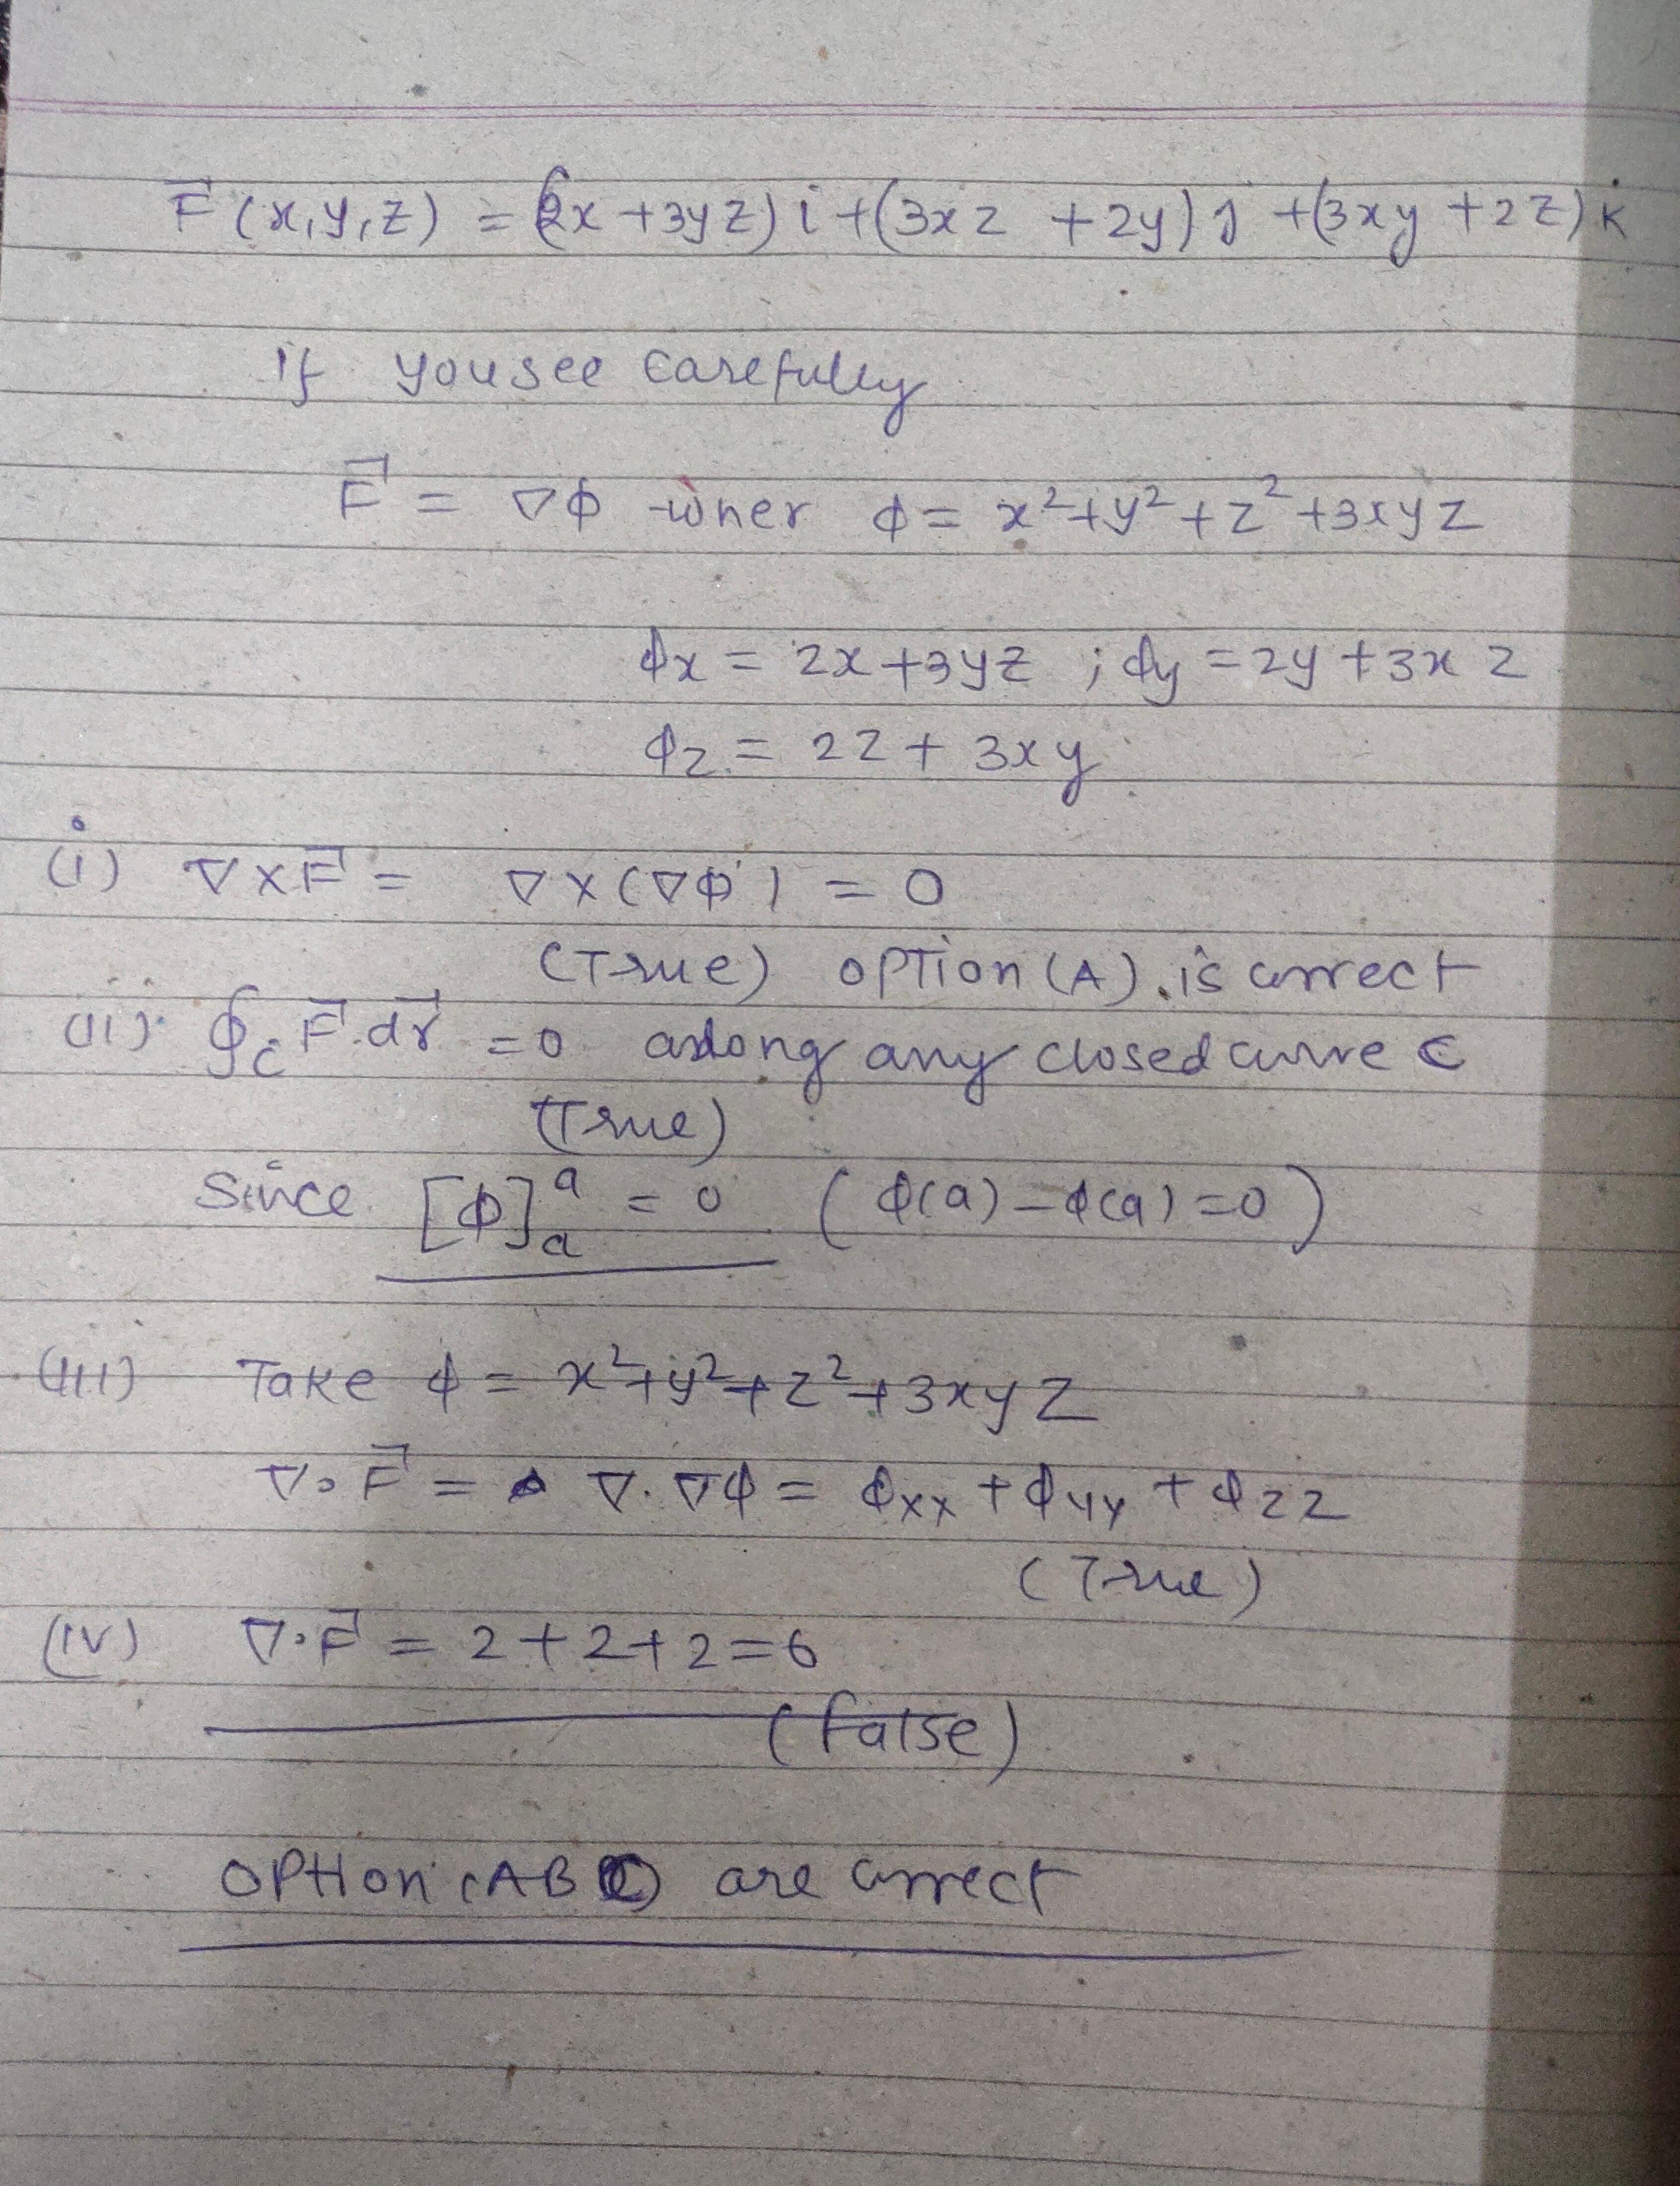 F⃗(x,y,z) = (2x+3yz)i+(3xz +2y)j +(3xy +2z)k
If you see carefully
F⃗ = ∇ϕ wher ϕ= x²+y²+z²+3xyz
ϕx = 2x+3yz ; ϕy =2y+3xz
ϕz = 2z+3xy
(i) ∇×F⃗ = ∇×(∇ϕ) = 0
(True) option (A) is correct
(ii) ∮c F⃗.dr⃗ =0 along any closed curve C
(True)
Since [ϕ]ᵃₐ = 0 (ϕ(a)-ϕ(a)=0)
(III) Take ϕ = x²+y²+z²+3xyz
∇.F⃗ = ∇.∇ϕ = ϕxx+ϕyy+ϕzz
(True)
(IV) ∇.F⃗ = 2+2+2=6
(false)
OPtion (ABC) are correct